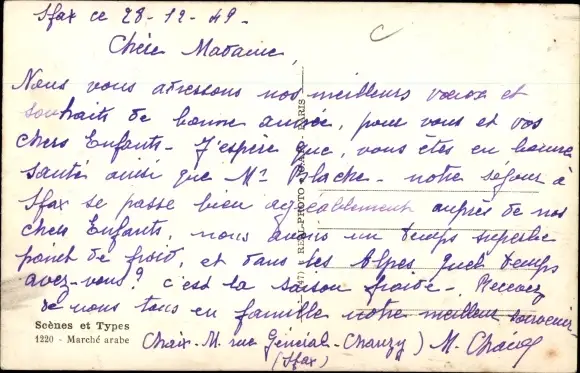 Sfax ce 28-12-49-
Chère Madame,
Nous vous adressons nos meilleurs vœux et
souhaits de bonne année, pour vous et vos
chers Enfants- J'espère que, vous êtes en bonne
santé ainsi que Mr Blache- notre séjour à
Sfax se passe bien agréablement auprès de nos
chers Enfants, nous avons un temps superbe
point de froid, et dans les Alpes quel temps
avez-vous? c'est la saison froide-. Recevez
de nous tous en famille notre meilleur souvenir
Scènes et Types
1220 - Marché arabe
Chaix-M. rue Général-Chanzy) M. Chaix
(Sfax)
REAL-PHOTO
PARIS